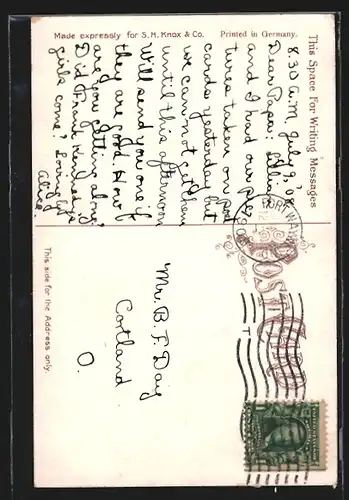 Made expressly for S. H. Knox & Co. Printed in Germany.
This Space For Writing Messages
8.30 A.M. July 9, '08
Dear Papa: Lillian
and I had our pic-
tures taken on post
cards yesterday but
we cannot get them
until this afternoon
Will send you one if
they are good. How
are you getting along,
Did Frank Kennedy's
girls come? Lovingly
Alice.
This side for the Address only.
POST CARD
Mr. B. F. Day
Cortland
O.